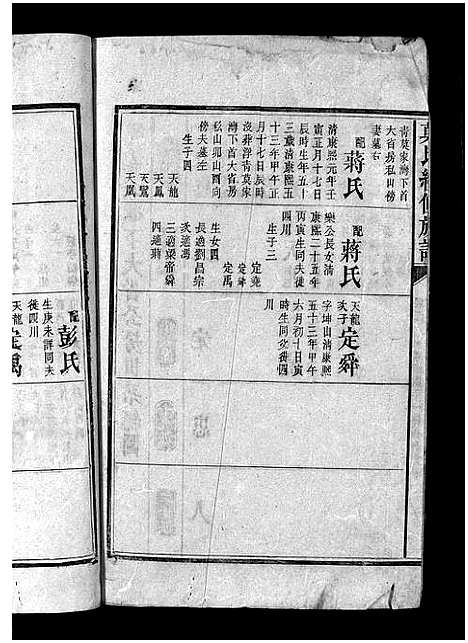 青莫家灣下首
大省房私山傍
妻墓右
配
蔣氏
清康熙元年壬
寅正月十七日
辰時生年五十
三歲清康熙五
十三年甲午正
月十七日辰時
沒葬浮青莫家
灣下首大省房
私山卯山酉向
傍夫墓左
生子四
天龍
天鳳
天鸞
配
蔣氏
樂公長女清
康熙二十五年
丙寅生同夫徙
四川
生子三
定堯
定舜
定禹
生女四
長適劉昌宗
次適馮
三適梁帝舜
四適蔣
天龍
次子
定舜
字坤山清康熙
五十三年甲午
六月初十日寅
時生同父徙四
川
天龍
定禹
配
彭氏
生庚未詳同夫
徙四川